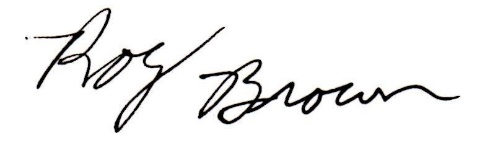 Roy Brown